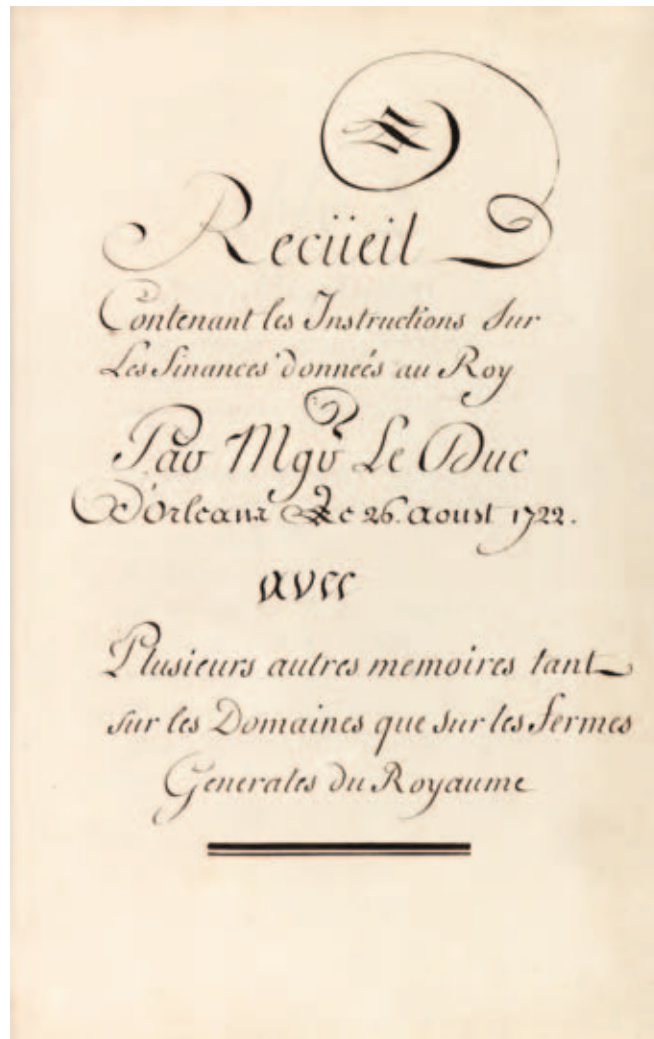 Recüeil
Contenant les Instructions sur
Les finances donneés au Roy
Par Mgr Le Duc
D'Orleans Le 26. aoust 1722.
avec
Plusieurs autres memoires tant
sur les Domaines que sur les fermes
Generales du Royaume